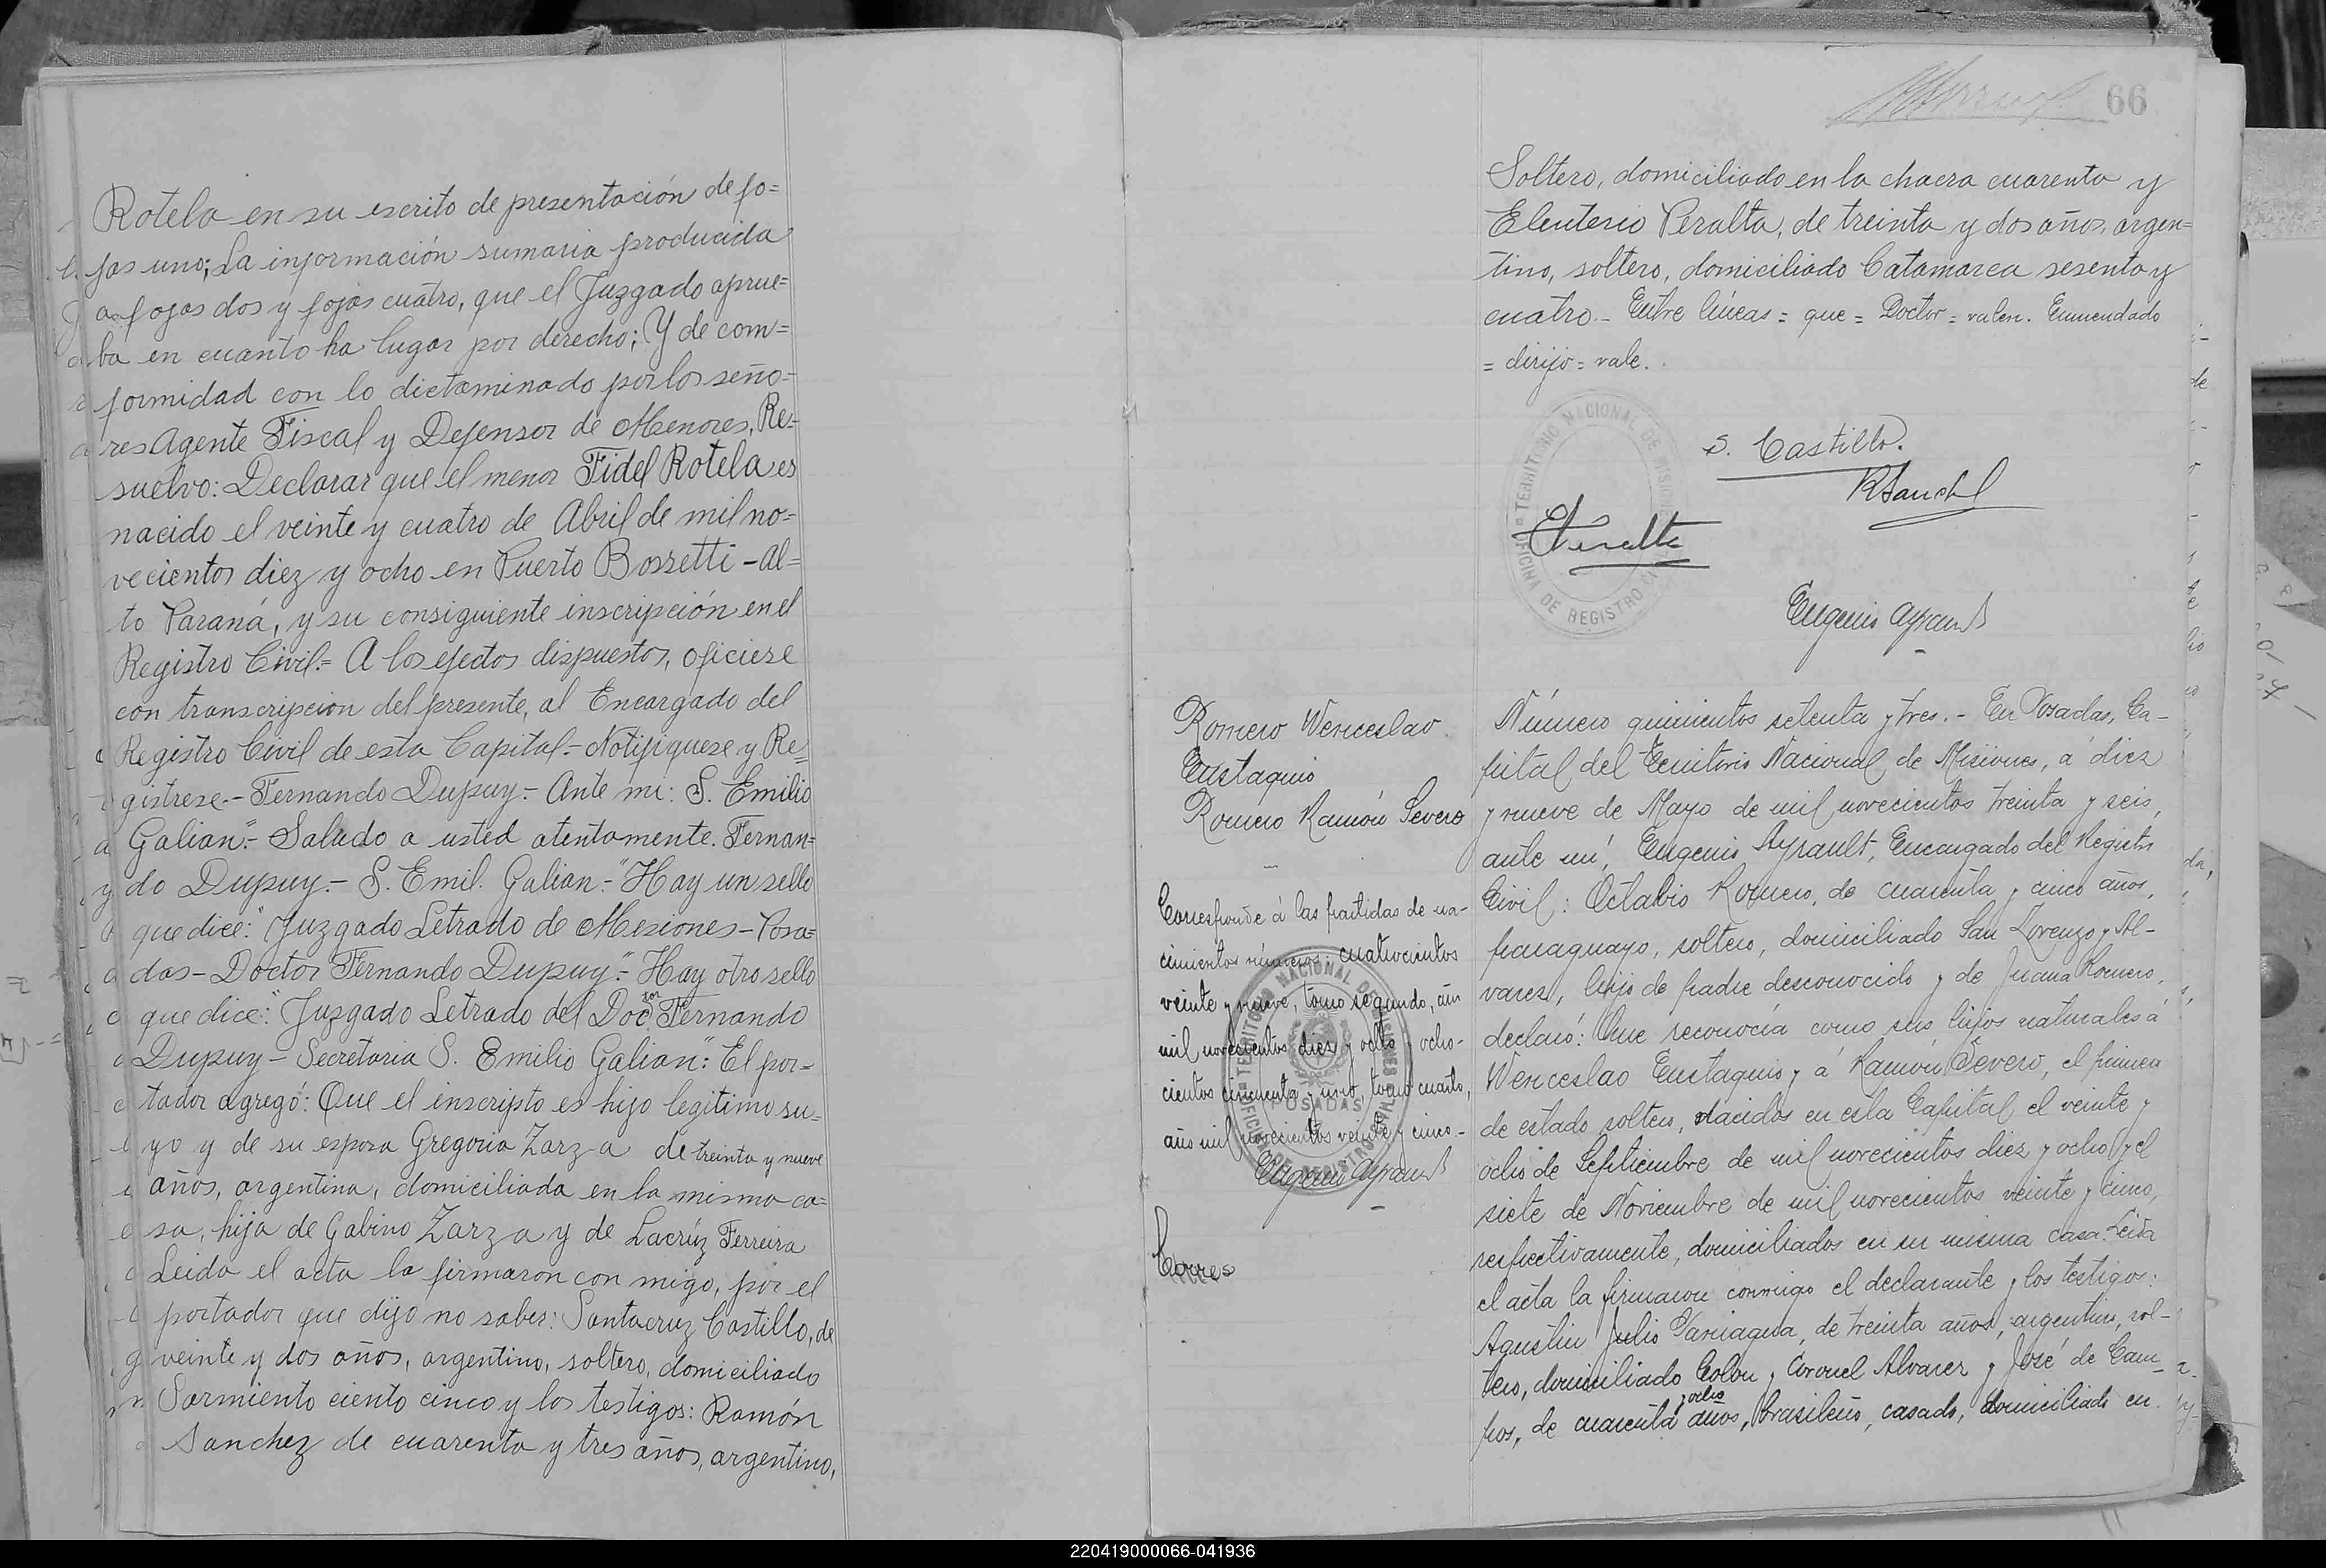 Rotela en su escrito de presentación de fo=
jas uno; La información sumaria producida
a fojas dos y fojas cuatro, que el Juzgado aprue=
ba en cuanto ha lugar por derecho; Y de com=
formidad con lo dictaminado por los seño=
res Agente Fiscal y Defensor de Menores, Re=
suelvo: Declarar que el menor Fidel Rotela es
nacido el veinte y cuatro de Abril de mil no=
vecientos diez y ocho en Puerto Bossetti - Al=
to Paraná, y su consiguiente inscripción en el
Registro Civil.= A los efectos dispuestos, oficiese
con transcripcion del presente, al Encargado del
Registro Civil de esta Capital.- Notifiquese y Re=
gistrese.- Fernando Dupuy.- Ante mi: S. Emilio
Galian".- Saludo a usted atentamente. Fernan=
do Dupuy.- S. Emil. Galian.- "Hay un sello
que dice:" Juzgado Letrado de Mesiones - Posa=
das - Doctor Fernando Dupuy".- Hay otro sello
que dice:" Juzgado Letrado del Doctor Fernando
Dupuy - Secretaria S. Emilio Galian": El por=
tador agregó: Que el inscripto es hijo legitimo su=
yo y de su esposa Gregoria Zarza de treinta y nueve
años, argentina, domiciliada en la misma ca=
sa, hija de Gabino Zarza y de Lacrúz Ferreira
Leida el acta la firmaron con migo, por el
portador que dijo no saber: Santacruz Castillo, de
veinte y dos años, argentino, soltero, domiciliado
Sarmiento ciento cinco y los testigos: Ramón
Sanchez de cuarenta y tres años, argentino,
66
Soltero, domiciliado en la chacra cuarenta y
Eleuterio Peralta, de treinta y dos años, argen=
tino, soltero, domiciliado Catamarca sesenta y
cuatro.- Entre líneas = que = Doctor = valen. Enmendado
= dirijo = vale.
TERRITORIO NACIONAL DE MISIONES
OFICINA DE REGISTRO CIVIL
S. Castillo.
RSanch
EPeralta
Eugenio Ayrault
Romero Wenceslao
Eustaquio
Romero Ramón Severo
Corresponde á las partidas de na-
cimientos números: cuatrocientos
veinte y nueve, tomo segundo, año
mil novecientos diez y ocho y ocho-
cientos cincuenta y uno, tomo cuarto,
año mil novecientos veinte y cinco.-
Eugenio Ayrault
TERRITORIO NACIONAL DE MISIONES
POSADAS
Corres
Número quinientos setenta y tres.- En Posadas, Ca-
pital del Territorio Nacional de Misiones, a diez
y nueve de Mayo de mil novecientos treinta y seis,
ante mí, Eugenio Ayrault, Encargado del Registro
Civil: Octabio Romero, de cuarenta y cinco años,
paraguayo, soltero, domiciliado San Lorenzo y Al-
varez, hijo de padre desconocido y de Juana Romero,
declaró: Que reconocía como sus hijos naturales á
Wenceslao Eustaquio y á Ramón Severo, el primero
de estado soltero, nacidos en esta Capital el veinte y
ocho de Septiembre de mil novecientos diez y ocho y el
siete de Noviembre de mil novecientos veinte y cinco,
respectivamente, domiciliados en su misma casa. Leida
el acta la firmaron conmigo el declarante y los testigos:
Agustin Julio Paniagua, de treinta años, argentino, sol-
tero, domiciliado Colon y Coronel Alvarez y José de Cam=
pos, de cuarenta y ocho años, brasileño, casado, domiciliado en
220419000066-041936